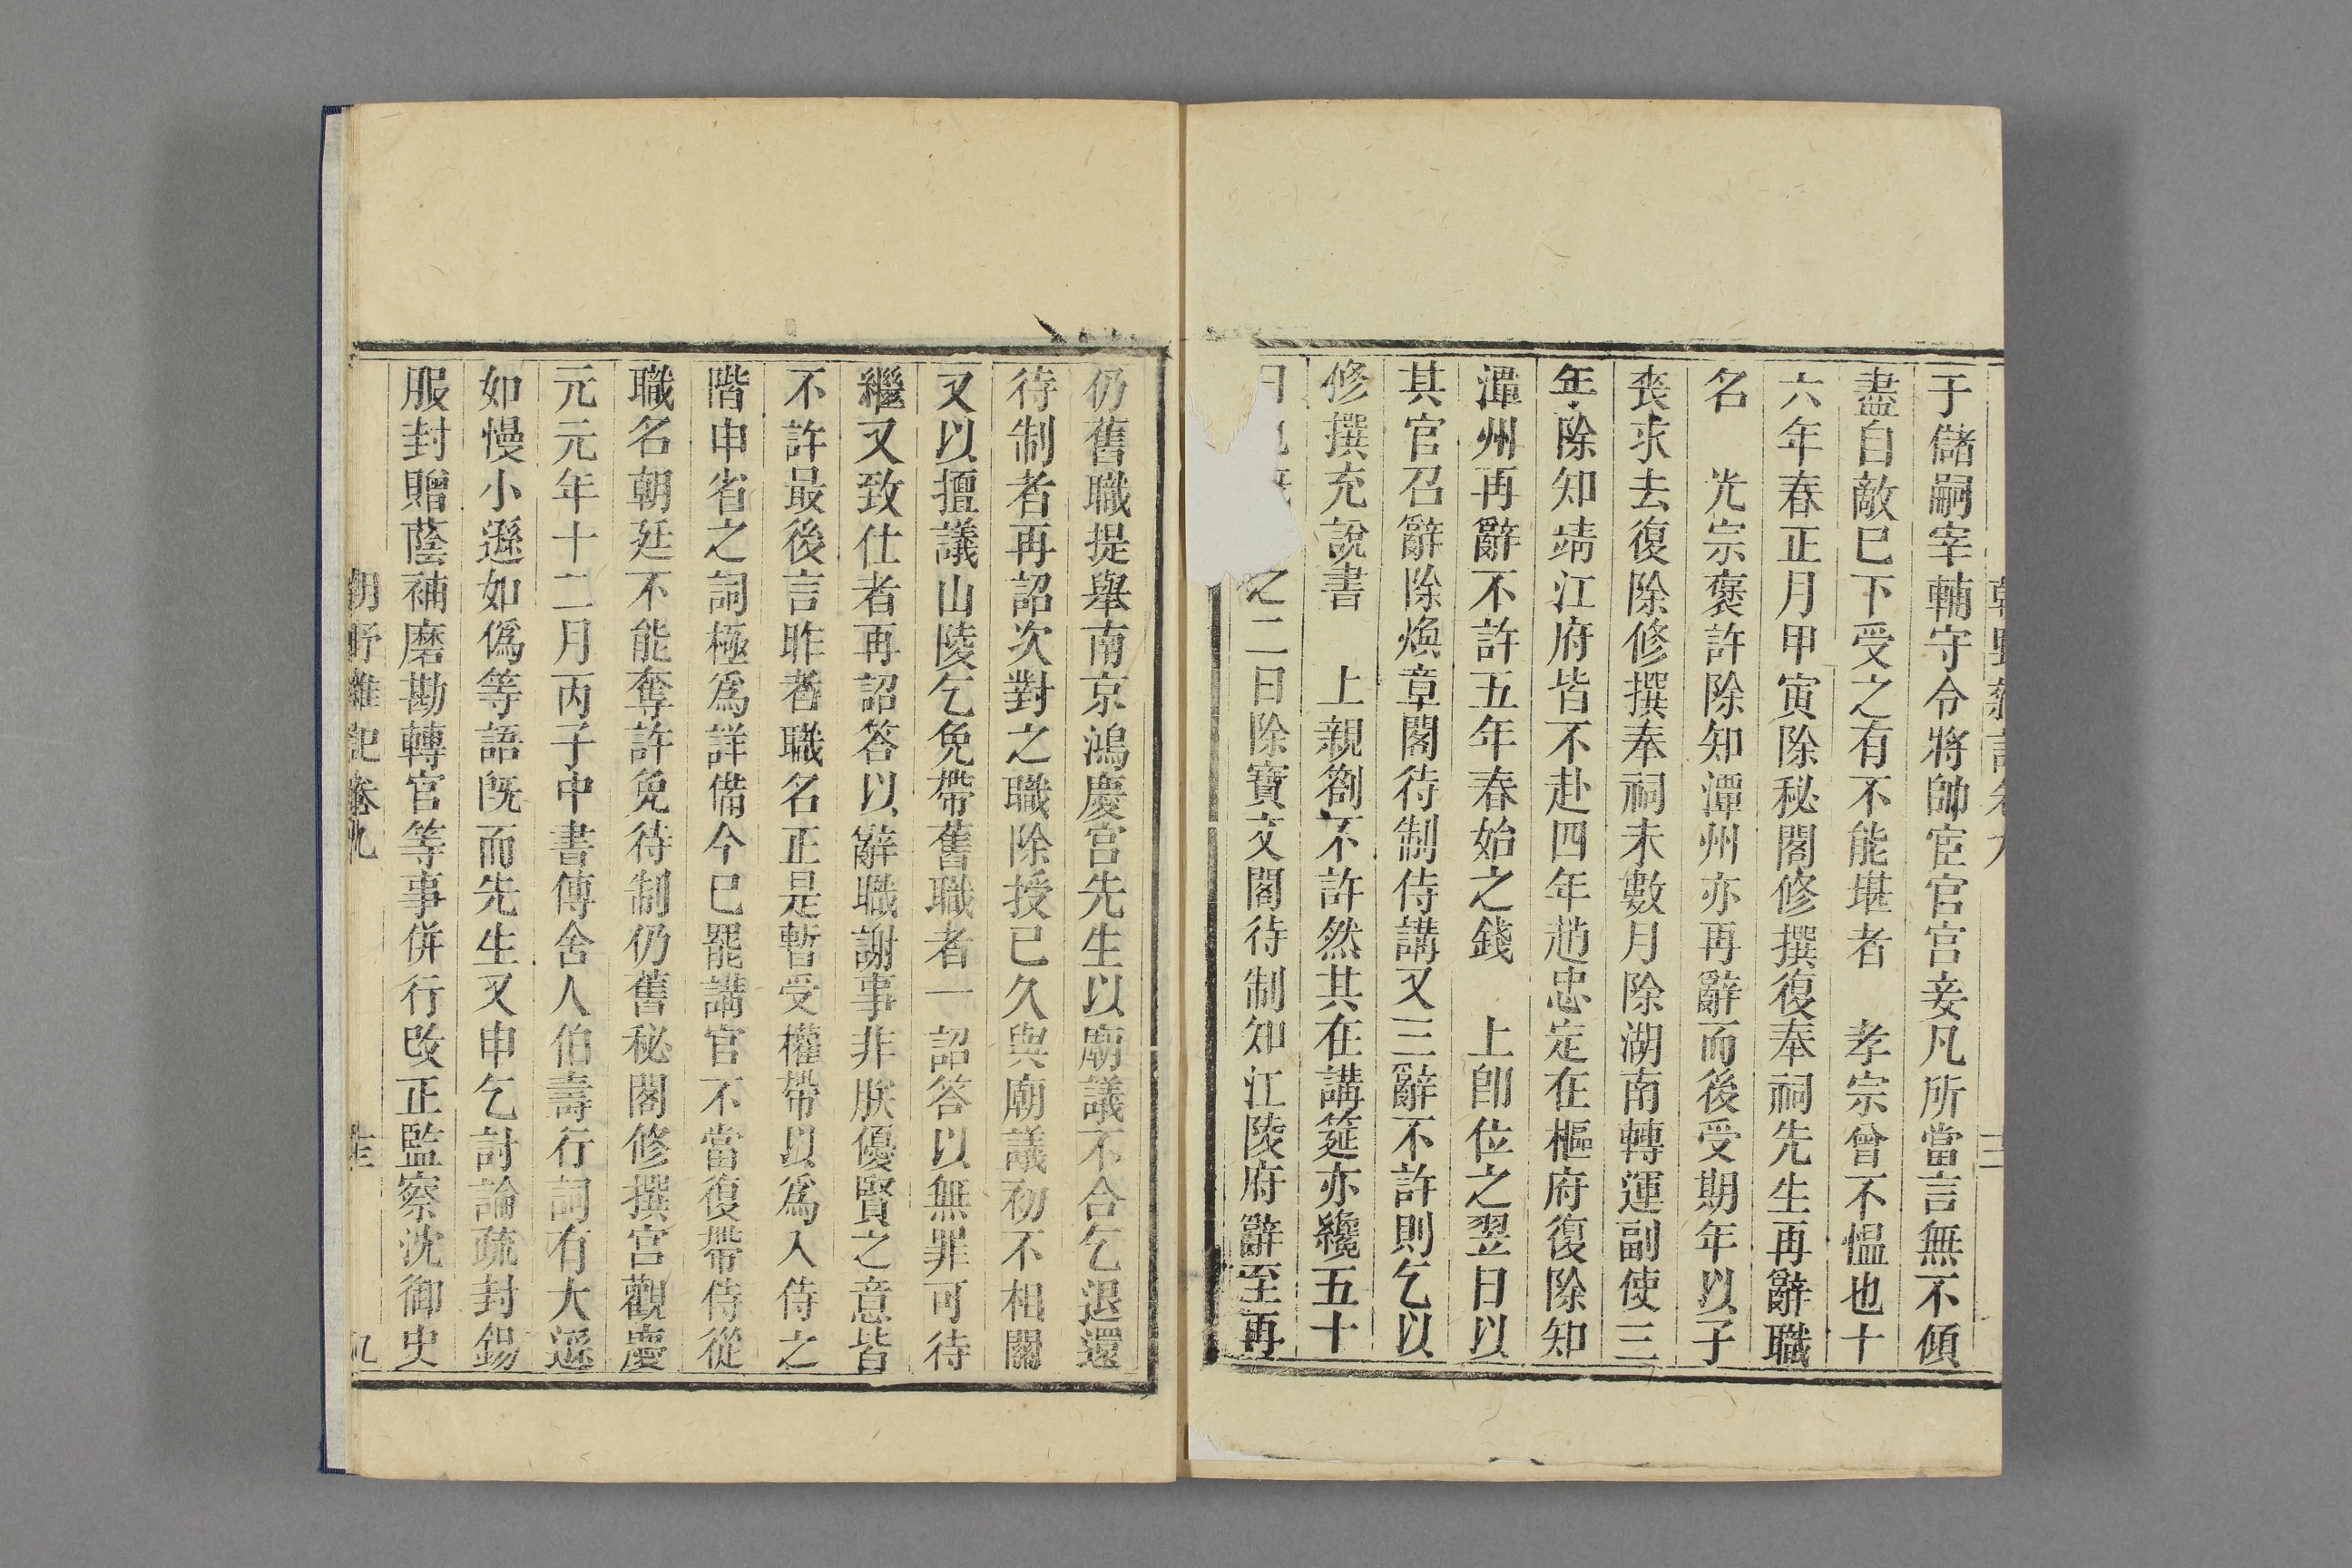 于儲嗣宰輔守令將帥宦官宮妾凡所當言無不傾
盡自敵已下受之有不能堪者　孝宗曾不慍也十
六年春正月甲寅除秘閣修撰復奉祠先生再辭職
名　光宗褒許除知潭州亦再辭而後受期年以子
喪求去復除修撰奉祠未數月除湖南轉運副使三
年除知靖江府皆不赴四年趙忠定在樞府復除知
潭州再辭不許五年春始之錢　上卽位之翌日以
其官召辭除煥章閣待制侍講又三辭不許則乞以
修撰充說書　上親劄不許然其在講筵亦纔五十
日之二日除寶文閣待制知江陵府辭至再
仍舊職提舉南京鴻慶宮先生以廟議不合乞退還
待制者再詔次對之職除授已久與廟議初不相關
又以擅議山陵乞免帶舊職者一詔答以無罪可待
繼又致仕者再詔答以辭職謝事非朕優賢之意皆
不許最後言昨者職名正是暫受權帶以爲入侍之
階申省之詞極爲詳備今已罷講官不當復帶侍從
職名朝廷不能奪許免待制仍舊秘閣修撰宮觀慶
元元年十二月丙子中書傅舍人伯壽行詞有大遜
如慢小遜如僞等語旣而先生又申乞討論疏封錫
服封贈蔭補磨勘轉官等事併行改正監察沈御史
朝野雜記卷九